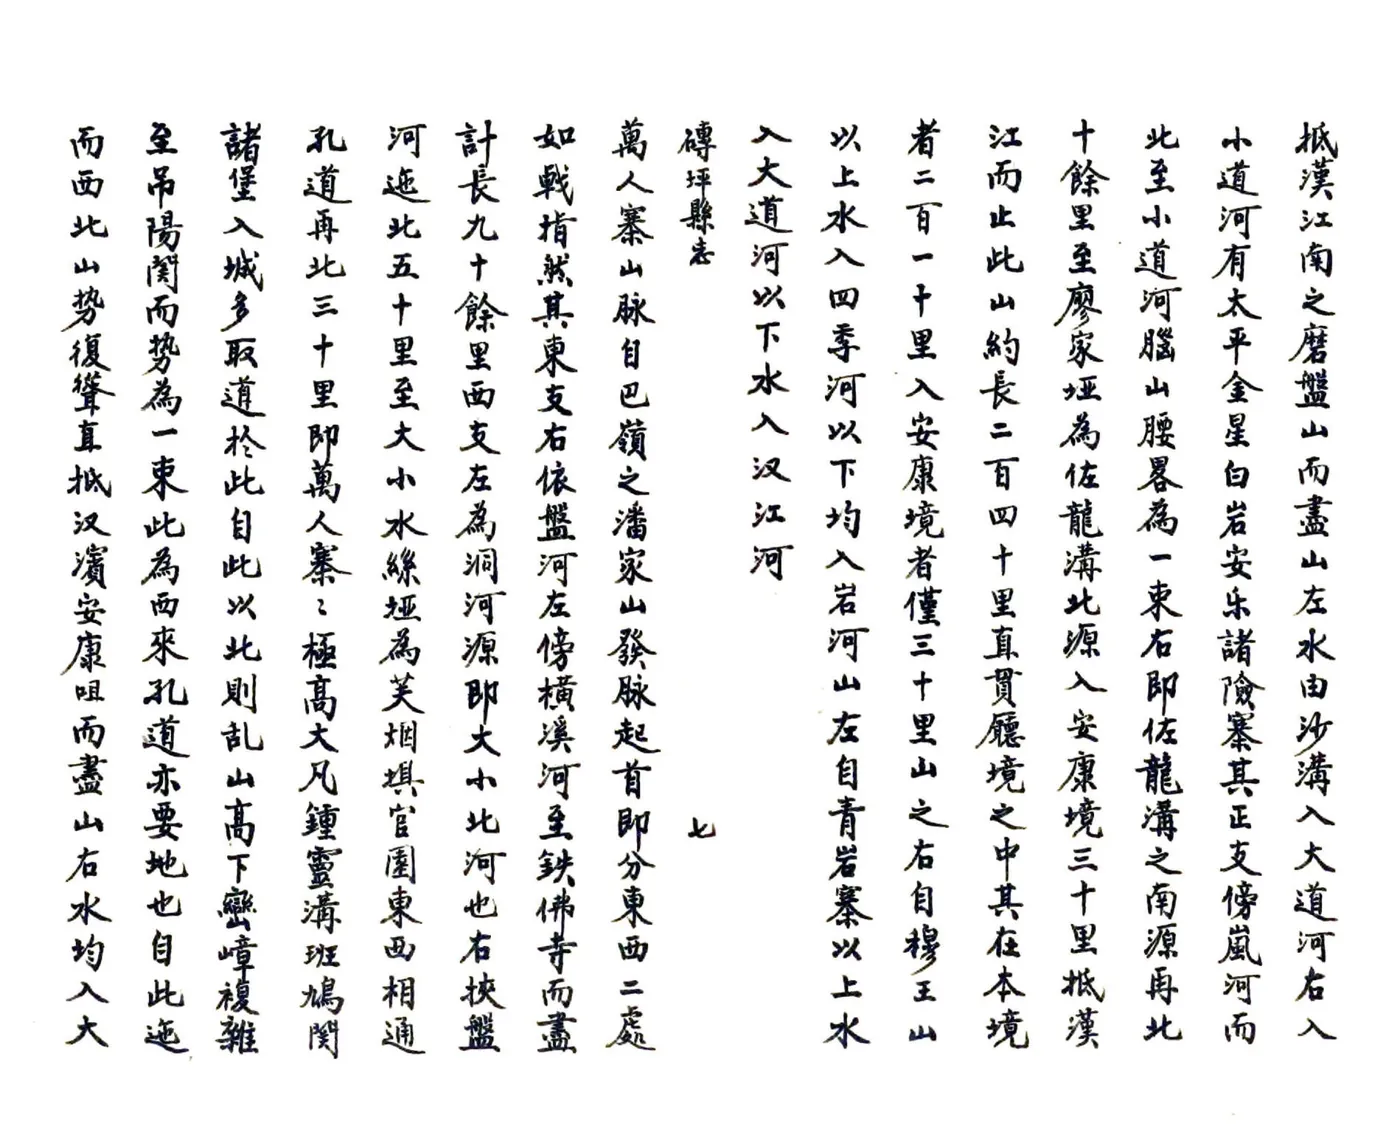 抵漢江南之磨盤山而盡山左水由沙溝入大道河右入
小道河有太平金星白岩安乐諸險寨其正支傍嵐河而
北至小道河腦山腰畧為一束右即佐龍溝之南源再北
十餘里至廖家埡為佐龍溝北源入安康境三十里抵漢
江而止此山約長二百四十里直貫廳境之中其在本境
者二百一十里入安康境者僅三十里山之右自穆王山
以上水入四季河以下均入岩河山左自青岩寨以上水
入大道河以下水入汉江河
磚坪縣志 七
萬人寨山脉自巴嶺之潘家山發脉起首即分東西二處
如戟指然其東支右依盤河左傍橫溪河至鉄佛寺而盡
計長九十餘里西支左為洞河源即大小北河也右挾盤
河迤北五十里至大小水絲埡為芙烟垻官園東西相通
孔道再北三十里即萬人寨〻極高大凡鍾靈溝班鳩関
諸堡入城多取道於此自此以北則乱山高下巒嶂複雜
至吊陽関而势為一束此為西來孔道亦要地也自此迤
而西北山势復聳直抵汉濱安康咀而盡山右水均入大